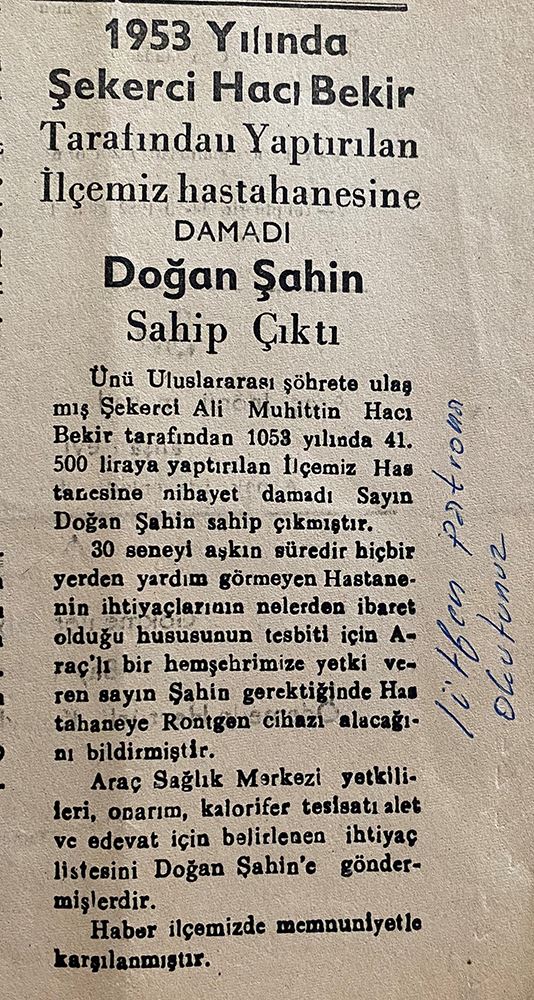 1953 Yılında
Şekerci Hacı Bekir
Tarafından Yaptırılan
İlçemiz hastahanesine
DAMADI
Doğan Şahin
Sahip Çıktı
Ünü Uluslararası şöhrete ulaş
mış Şekerci Ali Muhittin Hacı
Bekir tarafından 1053 yılında 41.
500 liraya yaptırılan İlçemiz Has
tanesine nihayet damadı Sayın
Doğan Şahin sahip çıkmıştır.
30 seneyi aşkın süredir hiçbir
yerden yardım görmeyen Hastane-
nin ihtiyaçlarının nelerden ibaret
olduğu hususunun tesbiti için A-
raç'lı bir hemşehrimize yetki ve-
ren sayın Şahin gerektiğinde Has
tahaneye Rontgen cihazı alacağı-
nı bildirmiştir.
Araç Sağlık Merkezi yetkili-
leri, onarım, kalorifer tesisatı alet
ve edevat için belirlenen ihtiyaç
listesini Doğan Şahin'e gönder-
mişlerdir.
Haber ilçemizde memnuniyetle
karşılanmıştır.
lütfen patrona
okutunuz